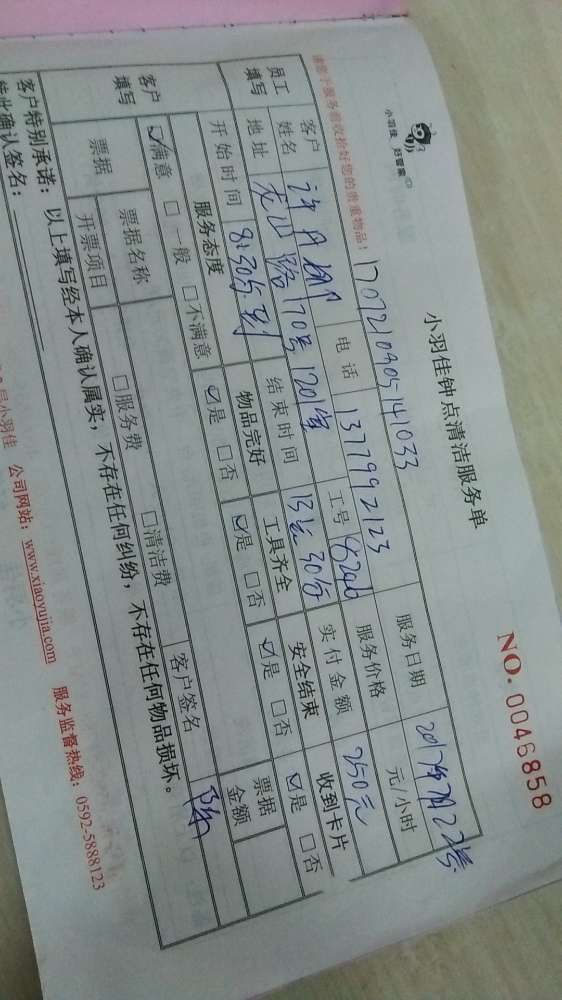 小羽佳 好管家
小羽佳钟点清洁服务单
NO. 0046858
请您于服务前收捡好您的贵重物品!
1707210905141033
服务日期 2017年7月22号
员工填写
客户姓名 电话 13779921123 服务价格 元/小时
地址 170号1201室 工号 8206 实付金额 250元
开始时间 8:30分到 结束时间 13点30分
客户填写
服务态度 物品完好 工具齐全 安全结束 收到卡片
☑满意 □一般 □不满意 ☑是 □否 ☑是 □否 ☑是 □否 ☑是 □否
票据 票据名称 □服务费 □清洁费 客户签名 票据金额
开票项目
客户特别承诺：以上填写经本人确认属实，不存在任何纠纷，不存在任何物品损坏。
特此确认签名：
小羽佳 公司网站：www.xiaoyujia.com 服务监督热线：0592-5888123